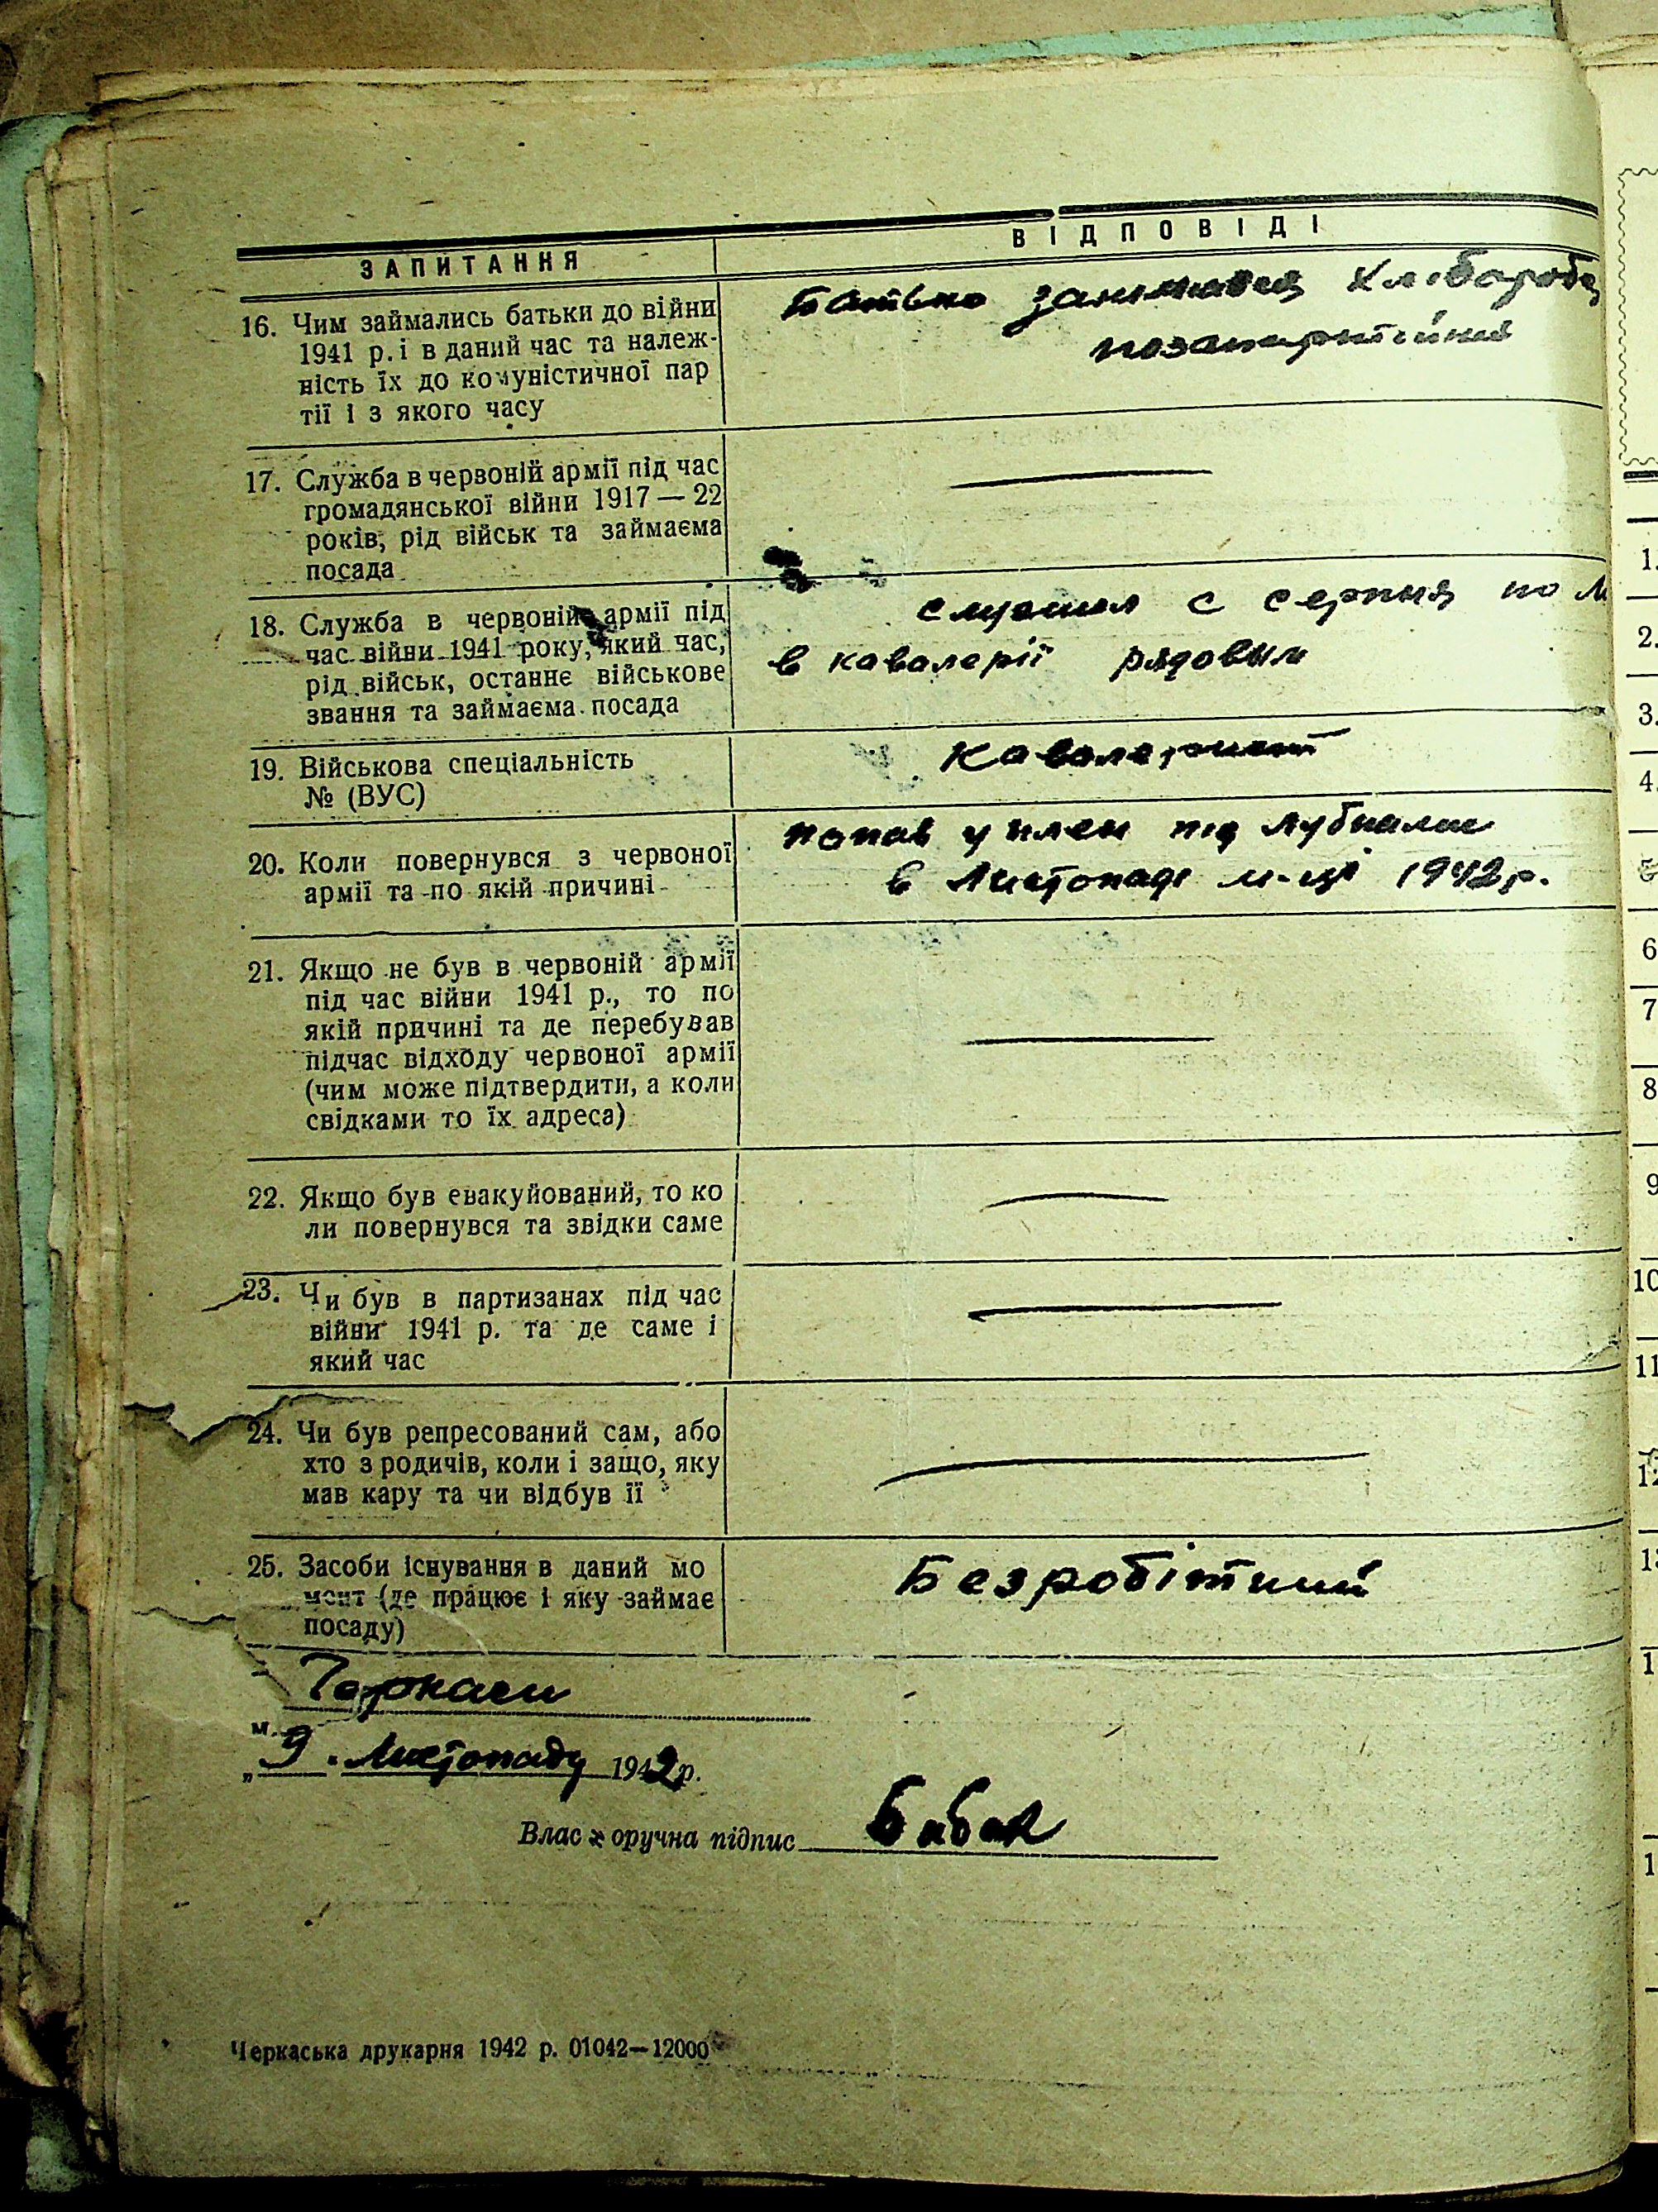 ЗАПИТАННЯ
ВІДПОВІДІ
16. Чим займались батьки до війни
1941 р. і в даний час та належ-
ність їх до комуністичної пар
тії і з якого часу
Батько занимався хлібароба
позапартійний
17. Служба в червоній армії під час
громадянської війни 1917 — 22
років, рід військ та займаєма
посада
18. Служба в червоній армії під
час війни 1941 року, який час,
рід військ, останнє військове
звання та займаєма посада
служил с серпня по
в кавалерії рядовым
19. Військова спеціальність
№ (ВУС)
Кавалерист
20. Коли повернувся з червоної
армії та по якій причині
попав у плен під Лубнами
в Листопаді м-ці 1942 р.
21. Якщо не був в червоній армії
під час війни 1941 р., то по
якій причині та де перебував
підчас відходу червоної армії
(чим може підтвердити, а коли
свідками то їх адреса)
22. Якщо був евакуйований, то ко
ли повернувся та звідки саме
23. Чи був в партизанах під час
війни 1941 р. та де саме і
який час
24. Чи був репресований сам, або
хто з родичів, коли і защо, яку
мав кару та чи відбув її
25. Засоби існування в даний мо
мент (де працює і яку займає
посаду)
Безробітний
Черкаси
м.
„9. Листопаду 1942 р.
Влас оручна підпис Бабак
Черкаська друкарня 1942 р. 01042—12000
1.
2.
3.
4.
5
6
7
8
9
10
11
12
13
1
1